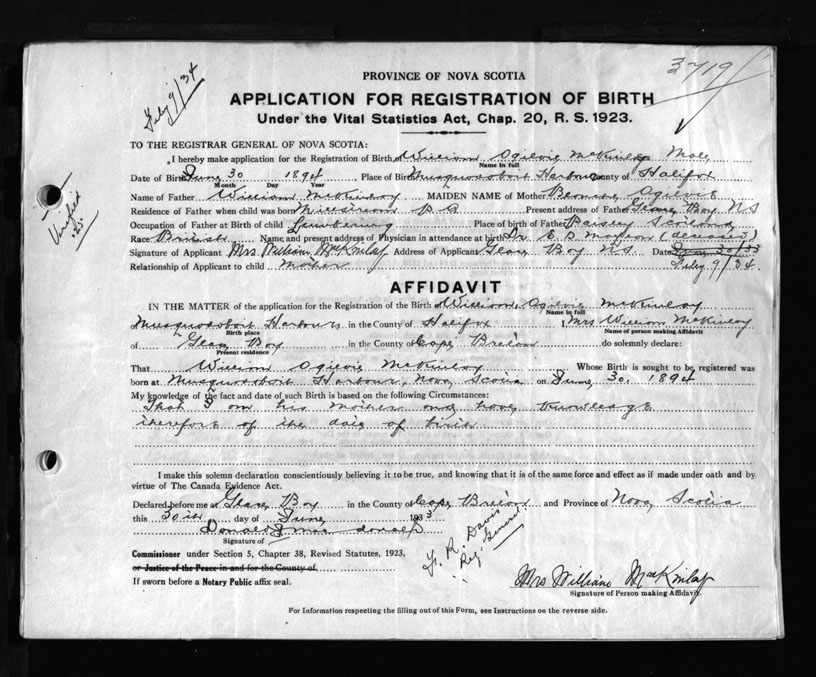 3719
July 9/34
PROVINCE OF NOVA SCOTIA
APPLICATION FOR REGISTRATION OF BIRTH
Under the Vital Statistics Act, Chap. 20, R. S. 1923.
TO THE REGISTRAR GENERAL OF NOVA SCOTIA:
I hereby make application for the Registration of Birth of William Ogilvie McKinlay Male
Name in full
Date of Birth June 30 1894 Place of Birth Musquodoboit Harbour County of Halifax
Month Day Year
Name of Father William McKinlay MAIDEN NAME of Mother Blanche Ogilvie
Residence of Father when child was born Present address of Father Glace Bay N S
Occupation of Father at Birth of child Lumbering Place of birth of Father Paisley Scotland
Race British Name and present address of Physician in attendance at birth Dr E. D. (deceased)
Signature of Applicant Mrs William MacKinlay Address of Applicant Glace Bay N S. Date June 30/33
July 9/34.
Relationship of Applicant to child mother
Verified
AFFIDAVIT
IN THE MATTER of the application for the Registration of the Birth of William Ogilvie McKinlay
Name in full
Musquodoboit Harbour in the County of Halifax I, Mrs William McKinlay
Birth place Name of person making Affidavit
of Glace Bay in the County of Cape Breton do solemnly declare:
Present residence
That William Ogilvie McKinlay Whose Birth is sought to be registered was
born at Musquodoboit Harbour, Nova Scotia on June 30, 1894
My knowledge of the fact and date of such Birth is based on the following Circumstances:
That I am his mother and have knowledge
therefore of the date of birth
I make this solemn declaration conscientiously believing it to be true, and knowing that it is of the same force and effect as if made under oath and by
virtue of The Canada Evidence Act.
Declared before me at Glace Bay in the County of Cape Breton and Province of Nova Scotia
this 30th day of June 1933
Donald
Signature of
F. R. Davis
Reg. General
Commissioner under Section 5, Chapter 38, Revised Statutes, 1923,
or Justice of the Peace in and for the County of
If sworn before a Notary Public affix seal.
Mrs William MacKinlay
Signature of Person making Affidavit.
For Information respecting the filling out of this Form, see Instructions on the reverse side.